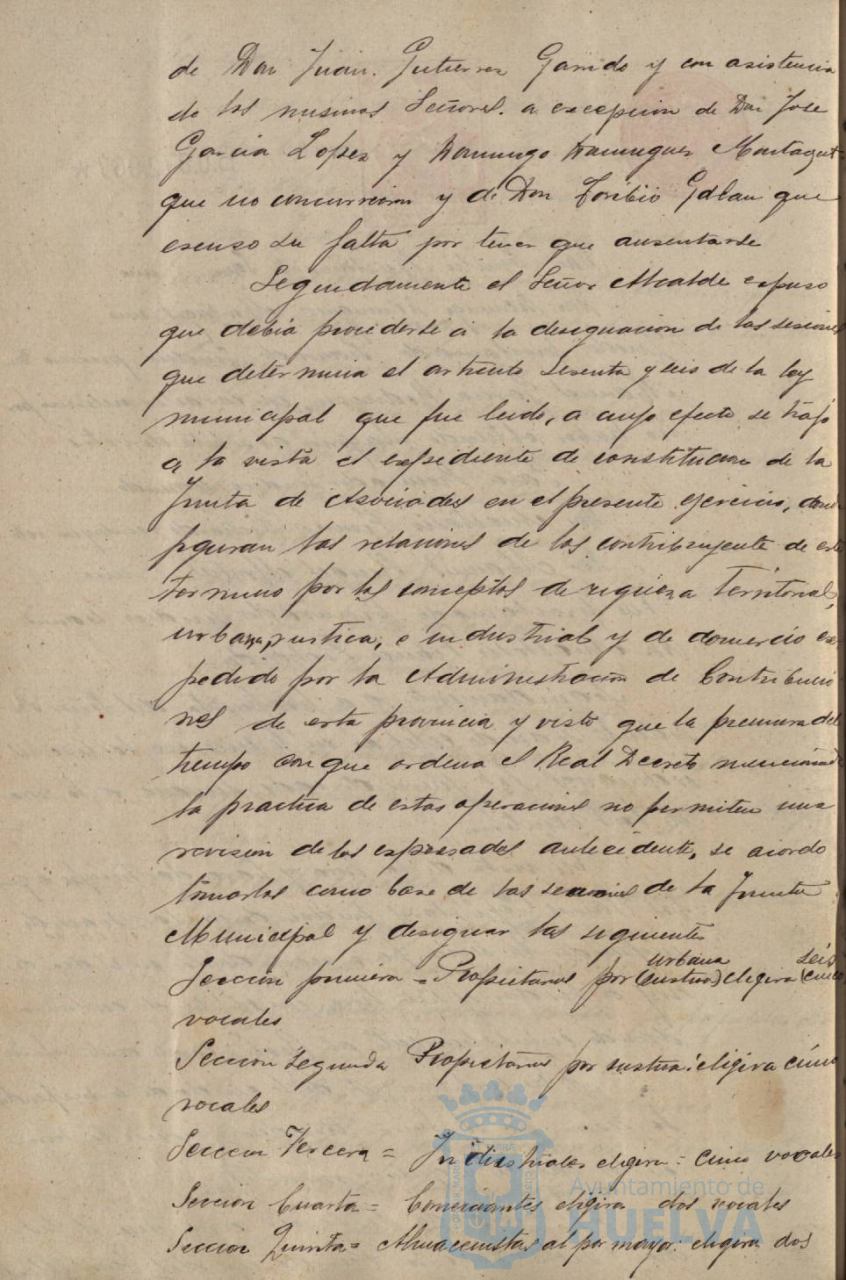 de Don Juan. Gutierrez Garrido y con asistencia
de los mismos Señores. a excepcion de Don Jose
Garcia Lopez y Domingo Dominguez Montagut
que no concurrieron y de Don Toribio Galan que
escuso su falta por tener que ausentarse
Seguidamente el Señor Alcalde espuso
que debia procederse á la designacion de las secciones
que determina el articulo sesenta y seis de la ley
municipal que fue leido, a cuyo efecto se trajo
á la vista el espediente de constitucion de la
Junta de Asociados en el presente ejercicio, donde
figuran las relaciones de los contribuyente de este
termino por los conceptos de riqueza Territorial,
urbana, rustica, e industrial y de comercio es
pedido por la Administracion de Contribucio
nes de esta provincia y visto que la premura del
tiempo con que ordena el Real Decreto mencionado
la practica de estas operaciones no permiten una
revision de los espresados antecedente, se acordo
tomarlos como base de las secciones de la Junta
Municipal y designar las siguientes
urbana seis
Seccion primera = Propietarios por (rustica) eligira (cinco)
vocales
Seccion Segunda Propietarios por rustica: eligira cinco
vocales
Seccion Tercera = Industriales eligira = cinco vocales
Seccion Cuarta = Comerciantes eligira dos vocales
Seccion Quinta = Almacenistas al por mayor: eligira dos
Ayuntamiento de
HUELVA